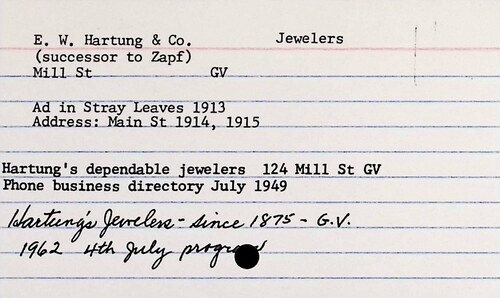 E. W. Hartung & Co. Jewelers
(successor to Zapf)
Mill St GV
Ad in Stray Leaves 1913
Address: Main St 1914, 1915
Hartung's dependable jewelers 124 Mill St GV
Phone business directory July 1949
Hartung's Jewelers - since 1875 - G.V.
1962 4th July program